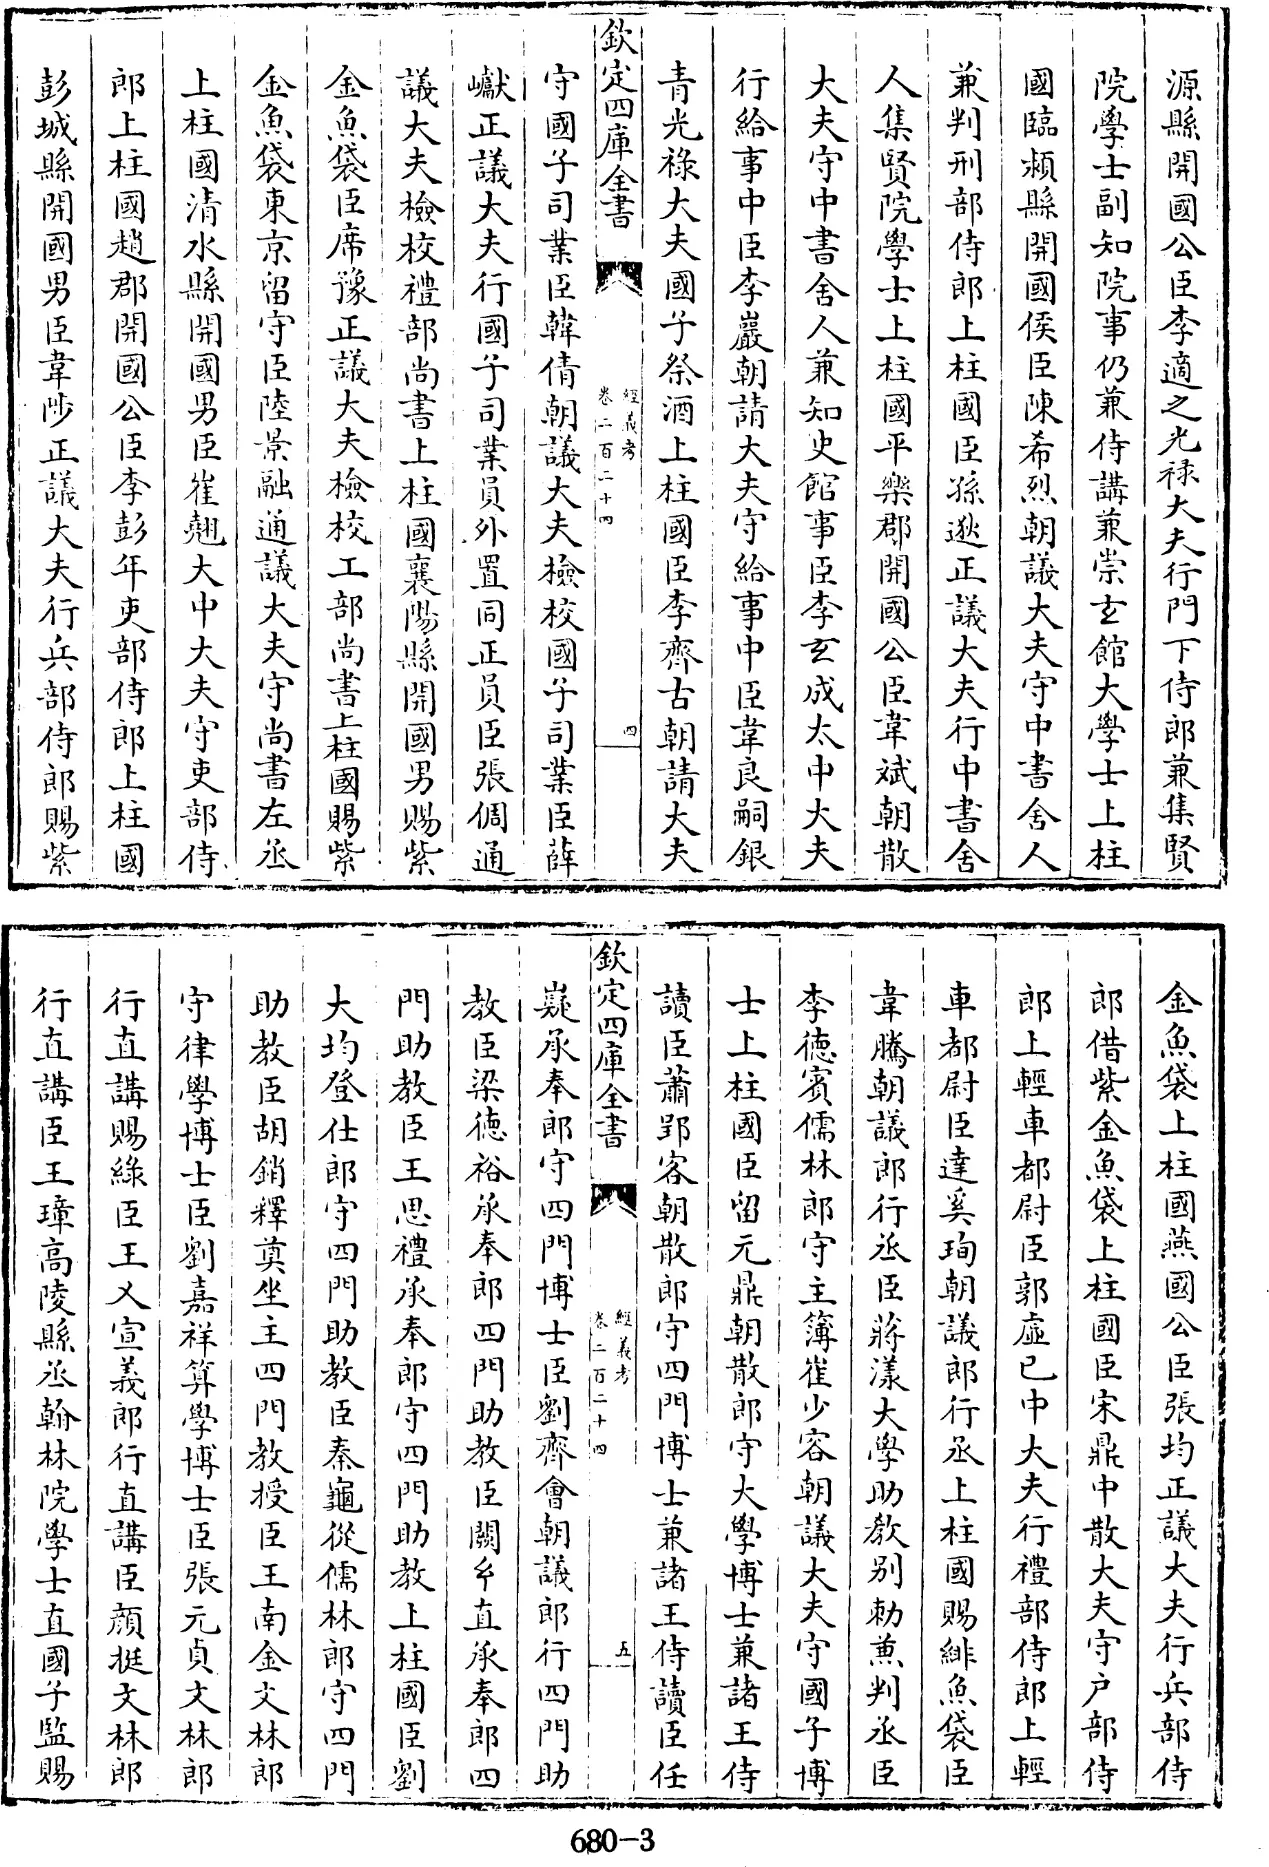 源縣開國公臣李適之光祿大夫行門下侍郎兼集賢
院學士副知院事仍兼侍講兼崇玄館大學士上柱
國臨潁縣開國侯臣陳希烈朝議大夫守中書舍人
兼判刑部侍郎上柱國臣孫逖正議大夫行中書舍
人集賢院學士上柱國平樂郡開國公臣韋斌朝散
大夫守中書舍人兼知史館事臣李玄成太中大夫
行給事中臣李巖朝請大夫守給事中臣韋良嗣銀
青光祿大夫國子祭酒上柱國臣李齊古朝請大夫
欽定四庫全書
經義考
卷二百二十四
四
守國子司業臣韓倩朝議大夫檢校國子司業臣薛
巘正議大夫行國子司業員外置同正員臣張倜通
議大夫檢校禮部尚書上柱國襄陽縣開國男賜紫
金魚袋臣席豫正議大夫檢校工部尚書上柱國賜紫
金魚袋東京留守臣陸景融通議大夫守尚書左丞
上柱國清水縣開國男臣崔翹大中大夫守吏部侍
郎上柱國趙郡開國公臣李彭年吏部侍郎上柱國
彭城縣開國男臣韋陟正議大夫行兵部侍郎賜紫
金魚袋上柱國燕國公臣張均正議大夫行兵部侍
郎借紫金魚袋上柱國臣宋鼎中散大夫守户部侍
郎上輕車都尉臣郭虛已中大夫行禮部侍郎上輕
車都尉臣達奚珣朝議郎行丞上柱國賜緋魚袋臣
韋騰朝議郎行丞臣蔣渼大學助教别勅兼判丞臣
李德賓儒林郎守主簿崔少容朝議大夫守國子博
士上柱國臣留元鼎朝散郎守大學博士兼諸王侍
讀臣蕭郢客朝散郎守四門博士兼諸王侍讀臣任
欽定四庫全書
經義考
卷二百二十四
五
嶷承奉郎守四門博士臣劉齊會朝議郎行四門助
教臣梁德裕承奉郎四門助教臣闗乎直承奉郎四
門助教臣王思禮承奉郎守四門助教上柱國臣劉
大均登仕郎守四門助教臣秦龜從儒林郎守四門
助教臣胡銷釋奠坐主四門教授臣王南金文林郎
守律學博士臣劉嘉祥算學博士臣張元貞文林郎
行直講賜緑臣王㐅宣義郎行直講臣顔挺文林郎
行直講臣王璋高陵縣丞翰林院學士直國子監賜
680-3